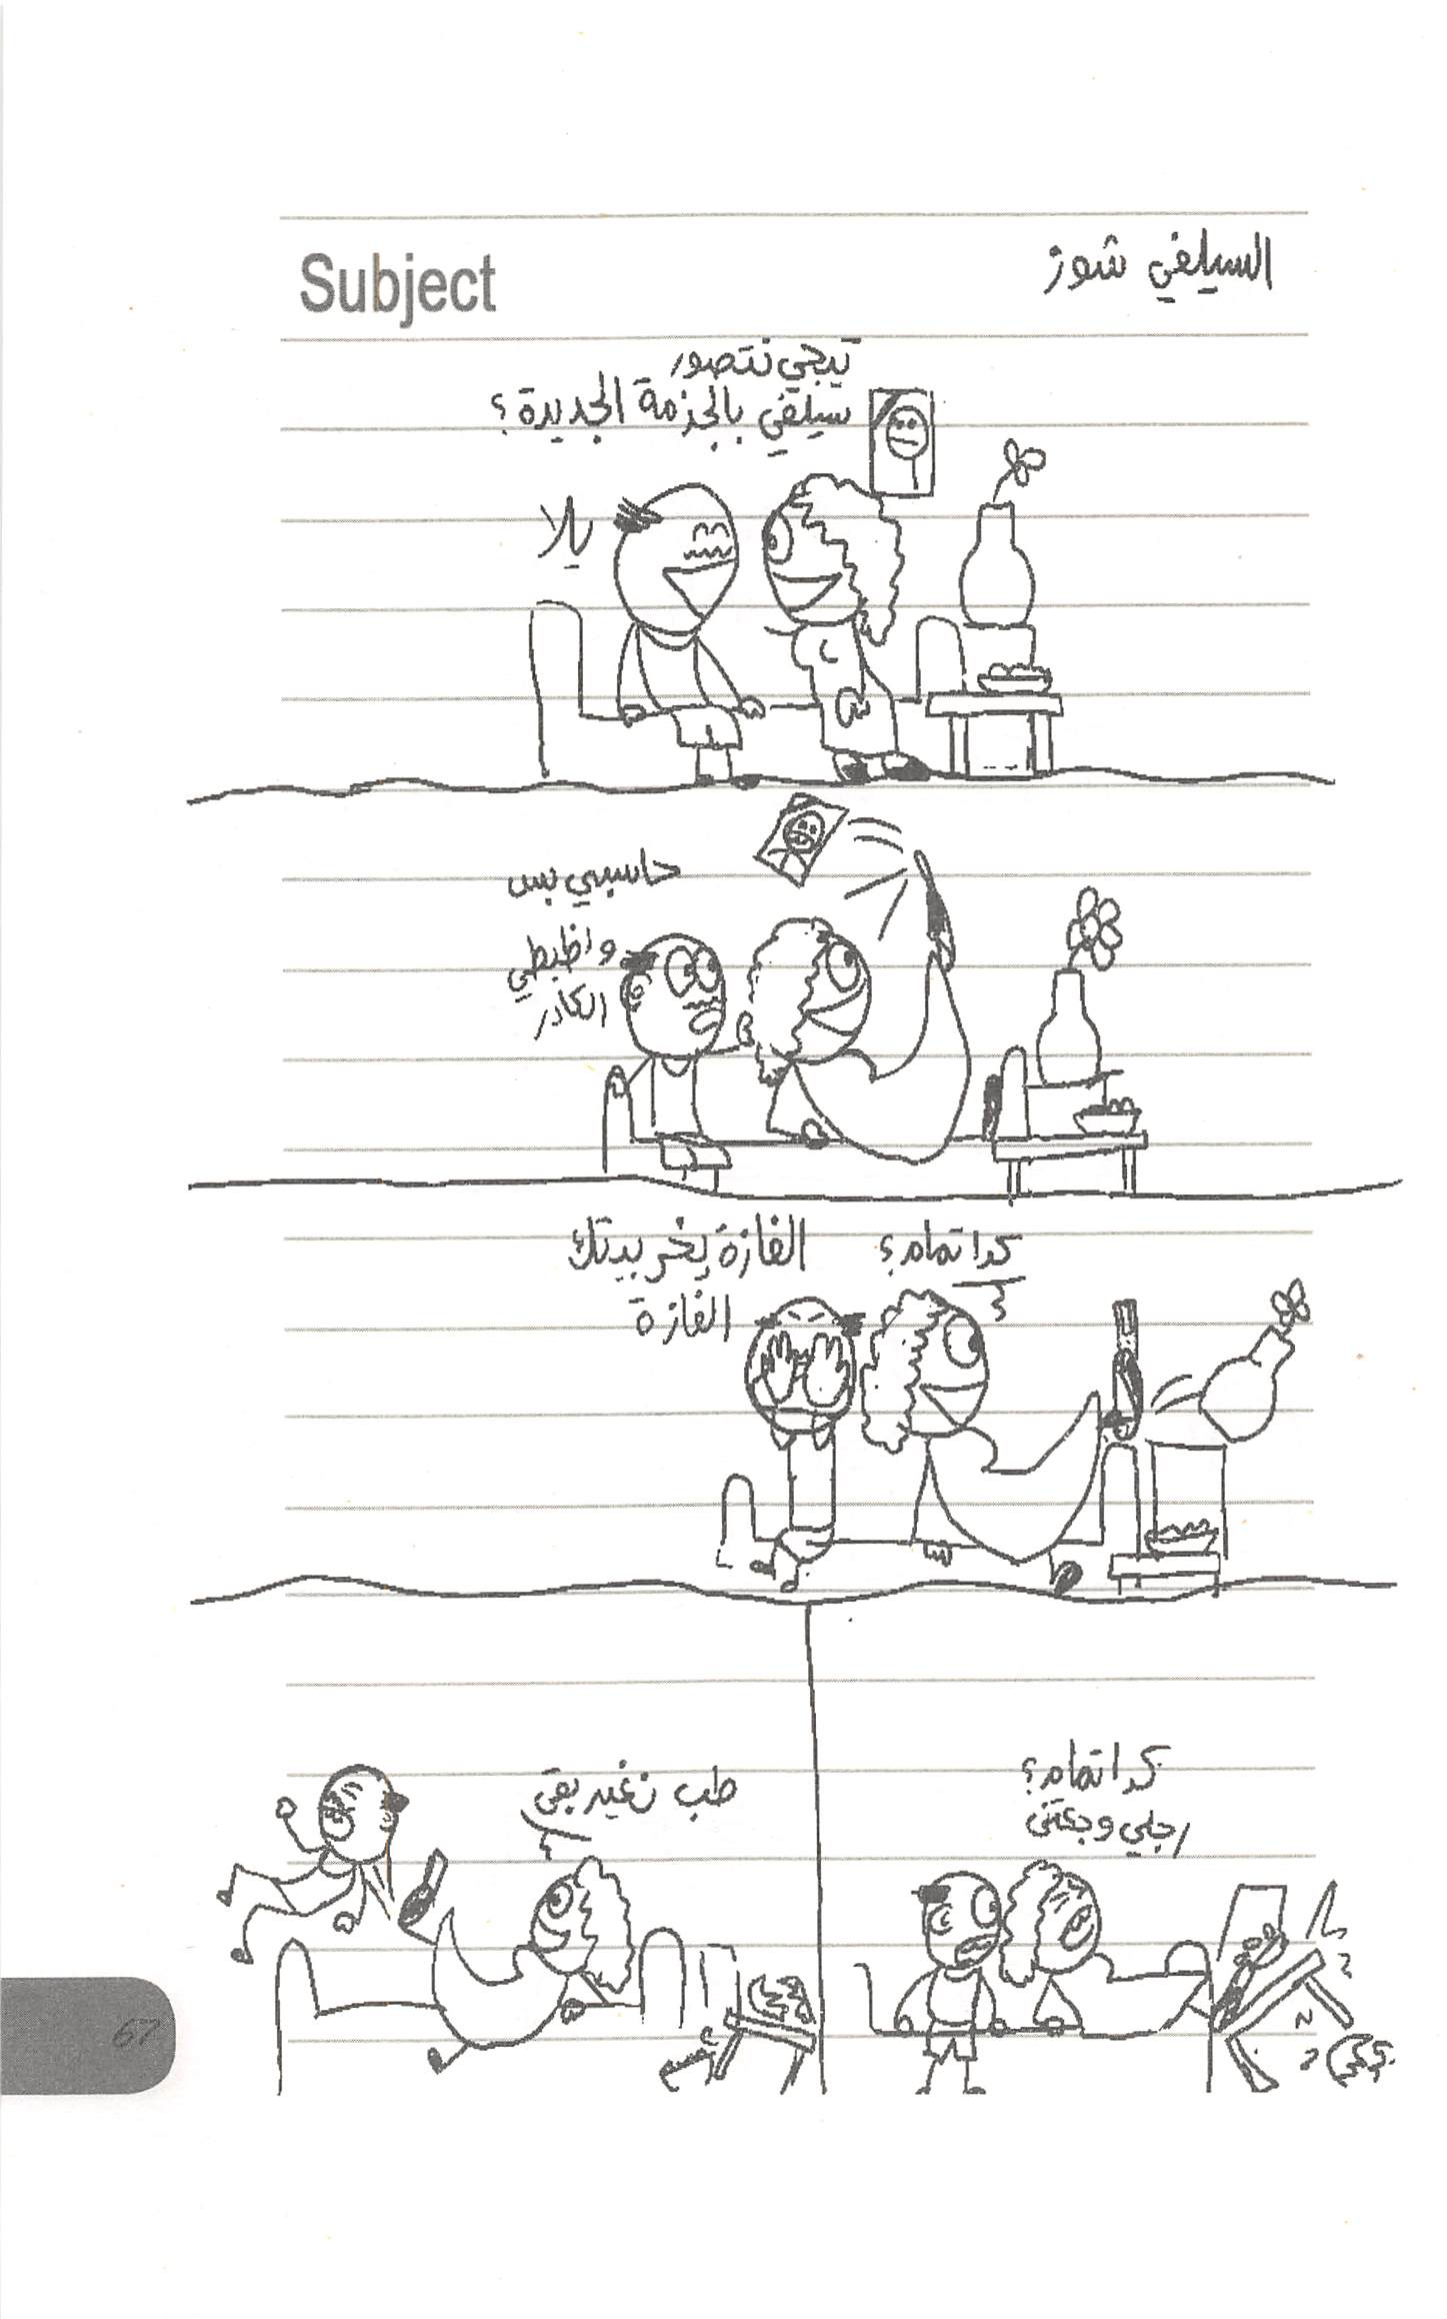 Subject
السيلفي شوز
تيجي نتصور
سيلفي بالجزمة الجديدة؟
يلا
حاسبي بس
واظبطي
الكادر
كدا تمام؟
الفازة يخر بيتك
الفازة
كدا تمام؟
رجلي وجعتني
طب نغير بقى
67